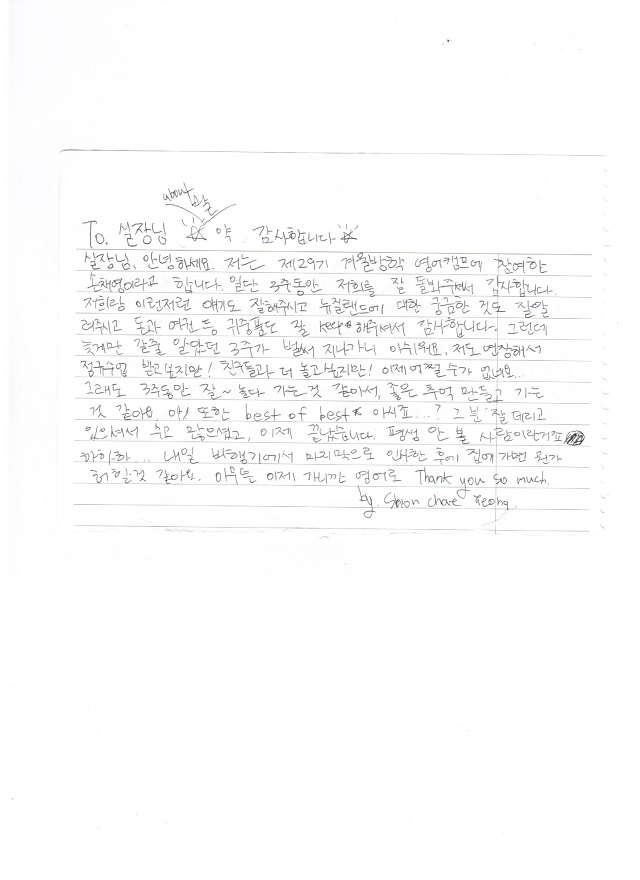 about
To. 실장님 약 감사합니다
실장님, 안녕하세요. 저는 제29기 겨울방학 영어캠프에 참여한
손채영이라고 합니다. 일단 3주동안 저희를 잘 돌봐주셔서 감사합니다.
저희랑 이런저런 얘기도 잘해주시고 뉴질랜드에 대한 궁금한 것도 잘알
려주시고 돈과 여권 등 귀중품도 잘 keep 해주셔서 감사합니다. 그런데
늦게만 갈줄 알았던 3주가 벌써 지나가니 아쉬워요. 저도 연장해서
정규수업 받고 싶지만! 친구들과 더 놀고 싶지만! 이제 어쩔 수가 없네요...
그래도 3주동안 잘~ 놀다 가는 것 같아서, 좋은 추억 만들고 가는
것 같아요. 아! 또한 best of best 아시죠...? 그 분 잘 데리고
있으셔서 수고 많으셨고, 이제 끝났습니다. 평생 안 볼 사람이란거죠
하하하... 내일 비행기에서 마지막으로 인사한 후에 집에 가면 뭔가
허할것 같아요. 아무튼 이제 가니깐 영어로 Thank you so much.
by. Shon chae Yeong.